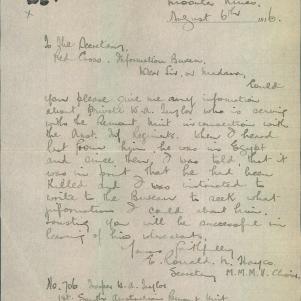 August 6th 1916.
To The Secretary,
Red Cross Information Bureau
Dear Sir, or Madam,
Could
you please give me any information
about Private W.A. Taylor who is serving
with the Remount Unit in connection with
the Aust. Regiments. When I heard
last from him he was in Egypt
and since then, I was told that it
was in print that he had been
killed and I was instructed to
write to the Bureau to seek what
information I could about him.
Trusting you will be successful in
hearing of his whereabouts.
Yours Faithfully
E. Ronald
Secretary M.M.M.U. Choir
No. 706. Trooper W.A. Taylor
1st Australian Remount Unit